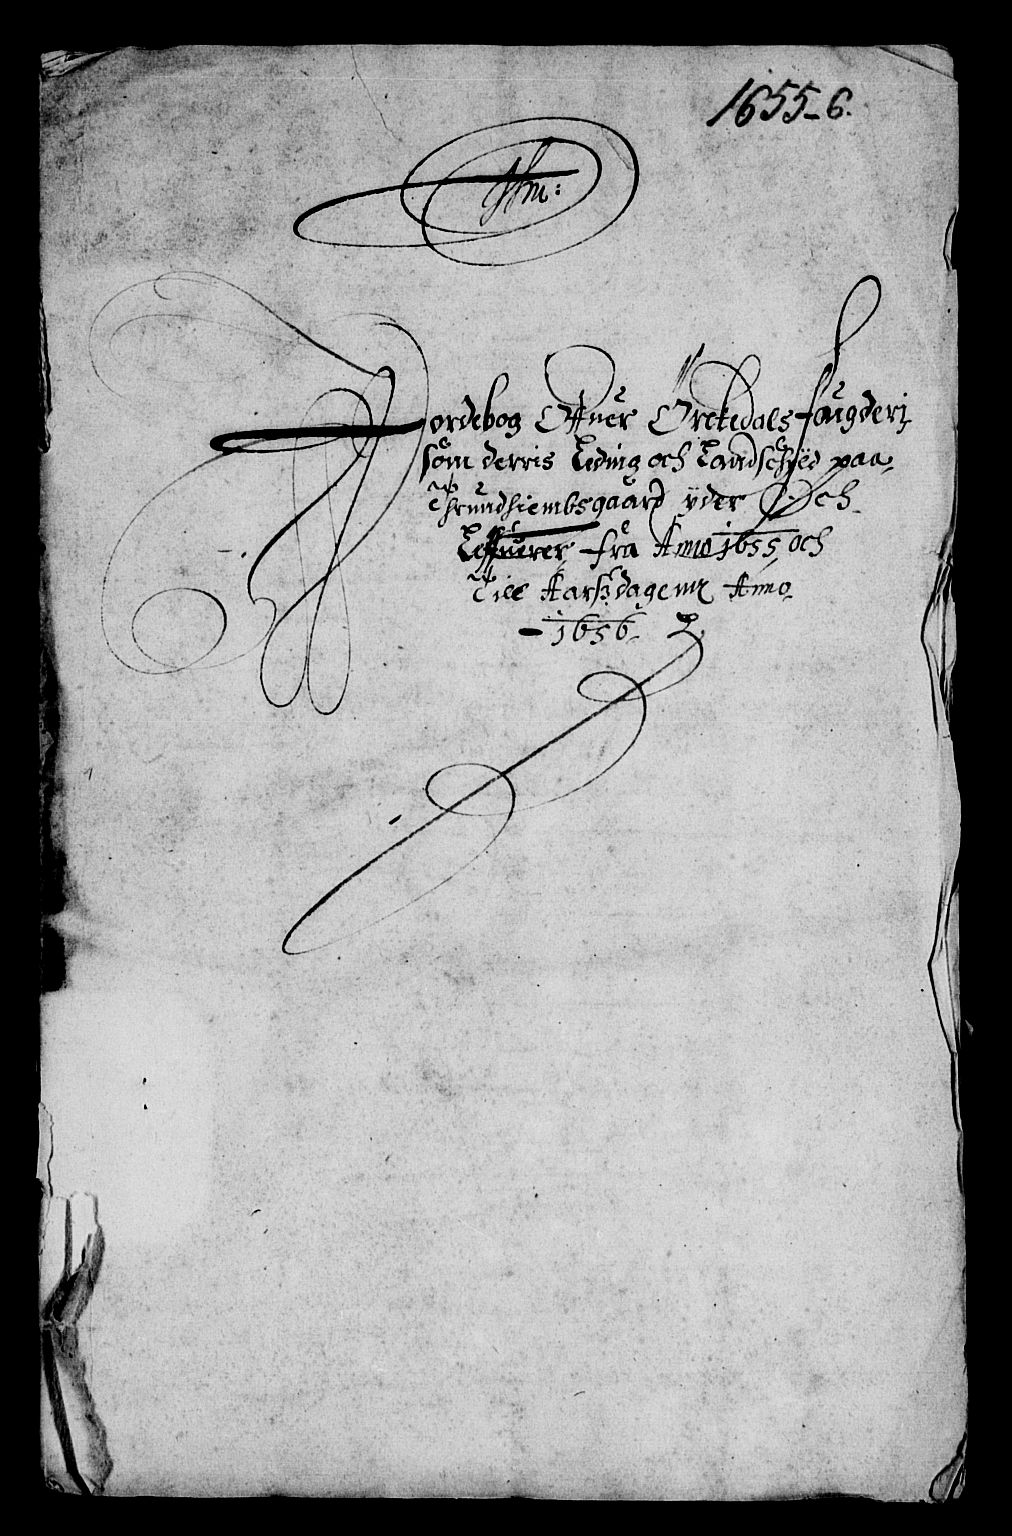 1655-6.
Jordebog Offuer Örckedals fougderi
som derris Leding och Landschÿld paa
Thrundhiembsgaard ÿder Och
Leffuerer fra Anno 1655 och
Till Aarszdagenn Anno
1656